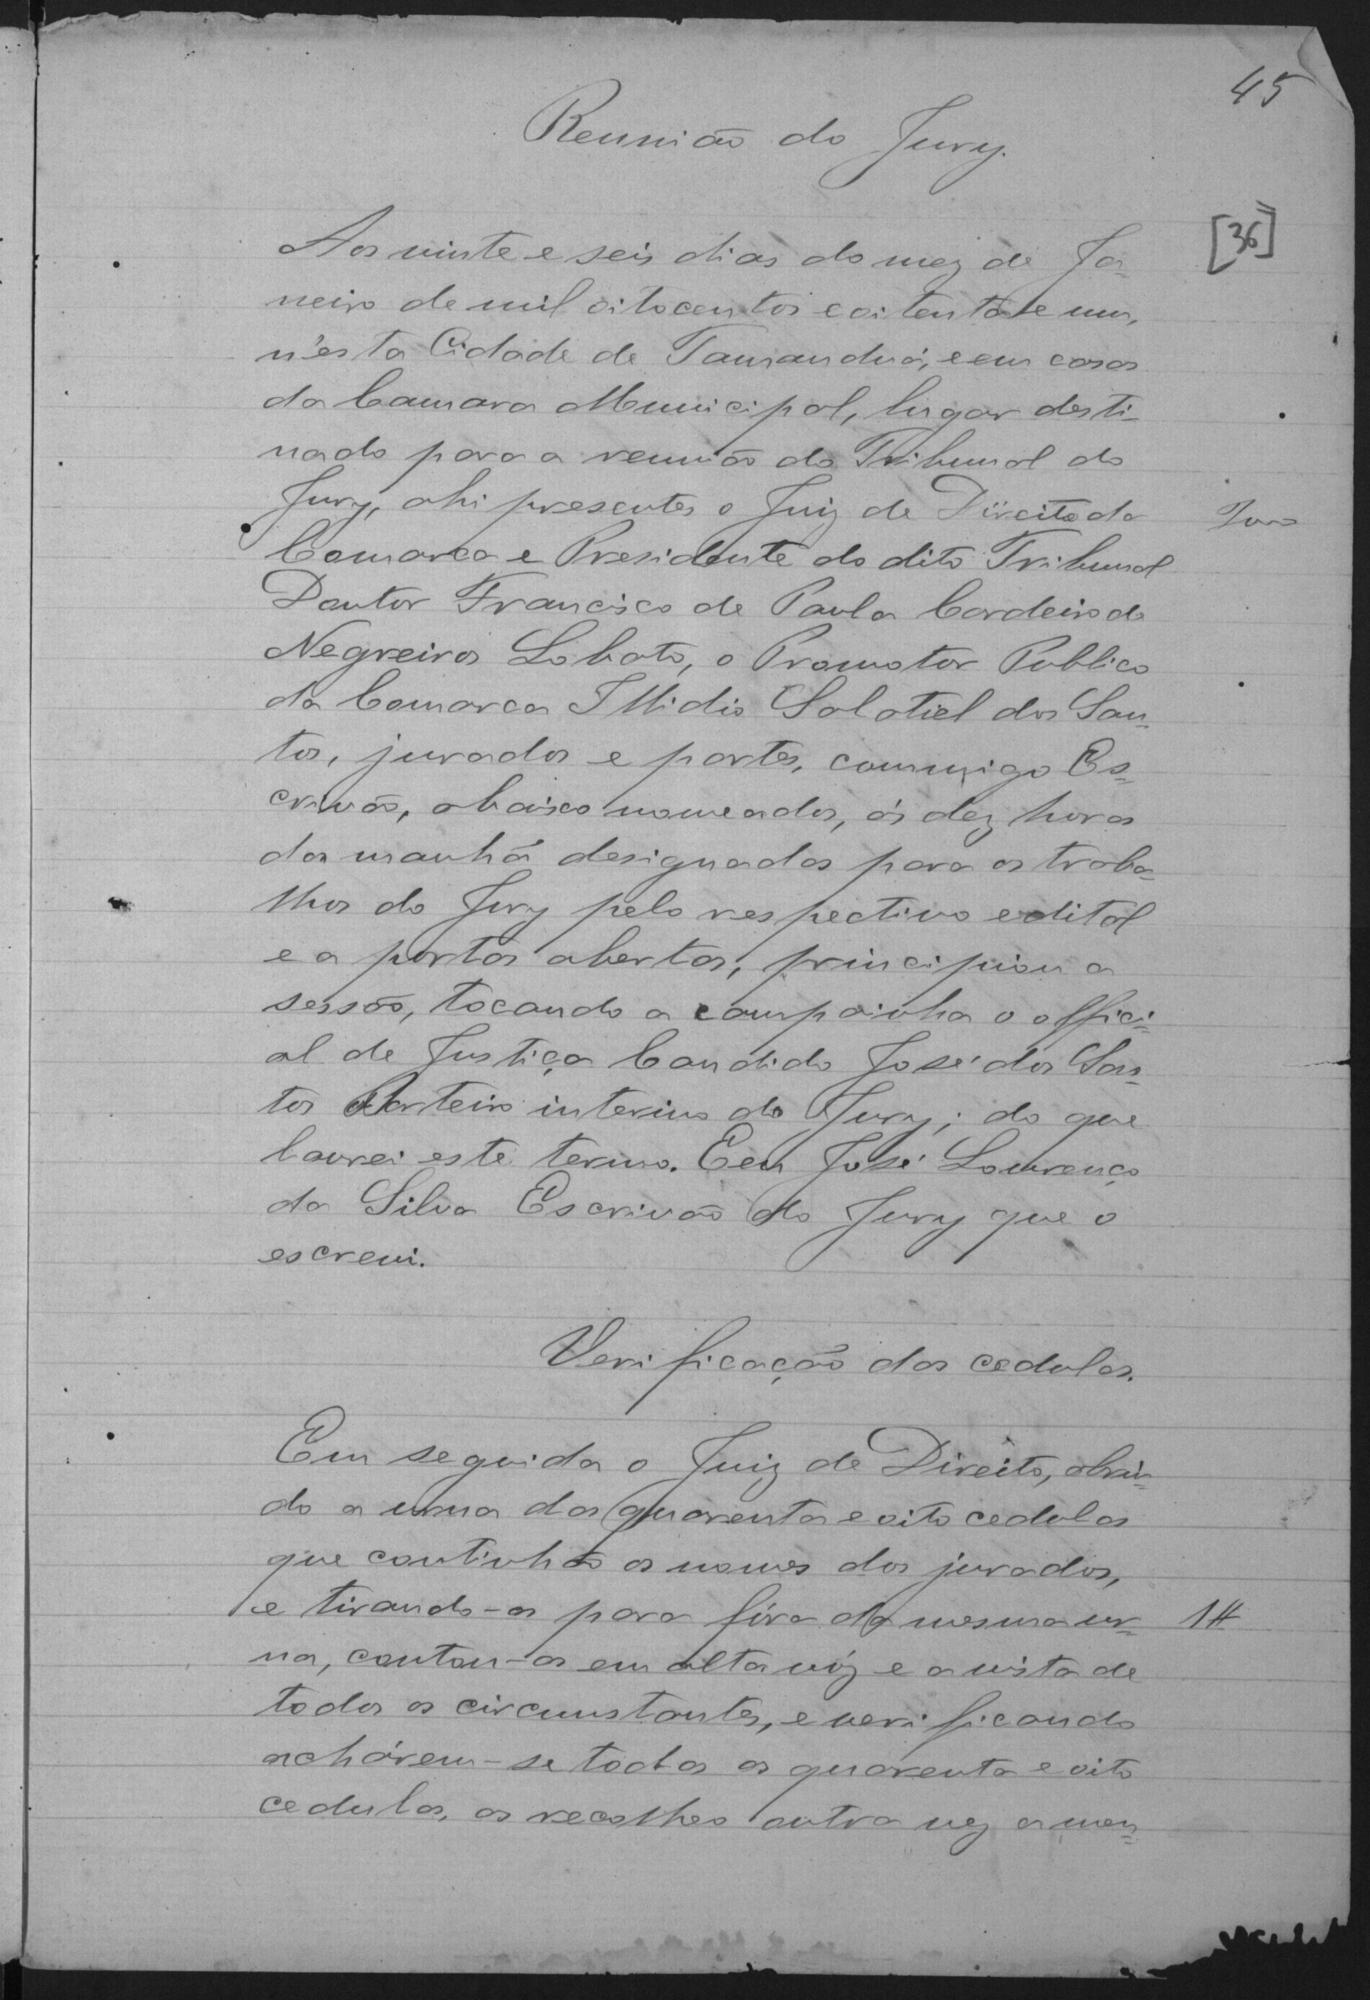 45
Reunião do Jury.
[36]
Aos vinte e seis dias do mez de Ja-
neiro de mil oitocentos e oitenta e um,
n'esta Cidade de Tamanduá, e em casas
da Camara Municipal, lugar desti-
nado para a reunião do Tribunal do
Jury, ahi presentes o Juiz de Direito da
Comarca e Presidente do dito Tribunal
Doutor Francisco de Paula Cordeiro de
Negreiros Lobato, o Promotor Publico
da Comarca Illidio Salatiel dos San-
tos, jurados e partes, commigo Es-
crivão, abaixo nomeados, ás dez horas
da manhã designadas para os traba-
lhos do Jury pelo respectivo edital
e a portas abertas, principiou a
sessão, tocando a campainha o offici-
al de Justiça Candido José dos San-
tos Porteiro interino do Jury; do que
lavrei este termo. Eeu José Lourenço
da Silva Escrivão do Jury que o
escrevi.
Verificação das cedulas.
Em seguida o Juiz de Direito, abrin-
do a urna das quarenta e oito cedulas
que continhão os nomes dos jurados,
e tirando-as para fóra da mesma ur-
1#
na, contou-as em alta vóz e a vista de
todos os circumstantes, e verificando
achárem-se todas as quarenta e oito
cedulas, as recolheo outra vez a men-